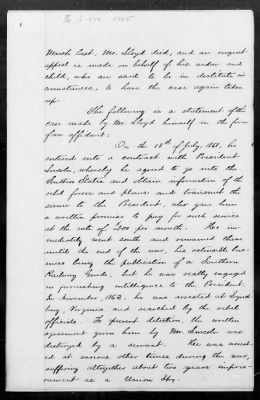 March last, Mr. Lloyd died, and an urgent
appeal is made on behalf of his widow and
child, who are said to be in destitute cir-
cumstances, to have the case again taken
up.
The following is a statement of the
case made by Mr. Lloyd himself in the form
of an affidavit:
On the 13th of July, 1861, he
entered into a contract with President
Lincoln, whereby he agreed to go into the
Southern States and obtain information of the
rebel forces and plans and transmit the
same to the President, who gave him
a written promise to pay for such service
at the rate of $200 per month. He im-
mediately went south and remained there
until the end of the war, his ostensible bus-
iness being the publication of a Southern
Railway Guide, but he was really engaged
in furnishing intelligence to the President.
In November, 1862, he was arrested at Lynch-
burg, Virginia and searched by the rebel
officials. To prevent detection, the written
agreement given him by Mr. Lincoln was
destroyed by a servant. He was arrest-
ed at various other times during the war,
suffering altogether about two years impris-
onment as a Union Spy.